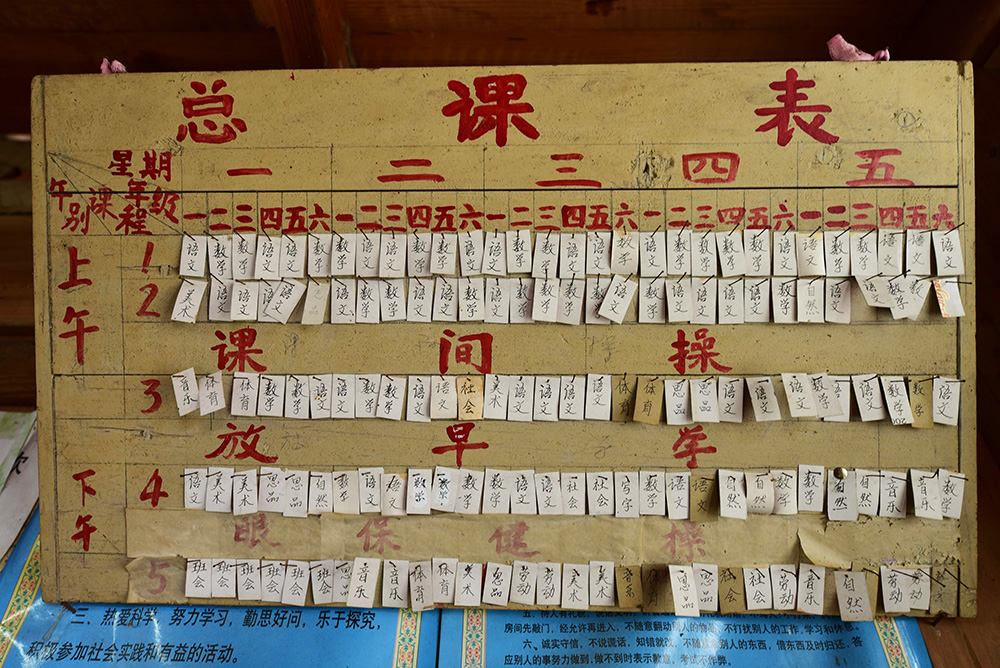 总课表
星期 一 二 三 四 五
午别 课程 年级 一二三四五六 一二三四五六 一二三四五六 一二三四五六 一二三四五六
上午 1 语文 数学 数学 语文 语文 数学 数学 语文 语文 数学 数学 语文 语文 数学 数学 语文 语文 数学 语文 语文 数学 数学 数学 语文 语文 数学 数学 语文 语文 语文
2 美术 语文 语文 语文 语文 语文 数学 数学 语文 语文 数学 语文 数学 数学 数学 数学 语文 数学 语文 语文 语文 语文 数学 自然 语文 语文 数学 数
课间操
3 音乐 体育 体育 数学 数学 语文 语文 数学 数学 语文 语文 社会 美术 语文 语文 语文 语文 体育 体育 思品 思品 语文 语文 语文 数学 语文 语文 数学 数学 语文
放早学
下午 4 语文 美术 美术 思品 思品 自然 数学 语文 语文 数学 数学 数学 数学 语文 语文 社会 社会 音乐 数学 语文 语文 自然 自然 数学 数学 自然 自然 音乐 音乐 数学
眼保健操
5 班会 班会 班会 班会 班会 班会 思品 音乐 音乐 体育 体育 美术 思品 劳动 劳动 美术 美术 音乐 体育 思品 思品 社会 社会 劳动 音乐 自然 劳动 劳动
三、热爱科学，努力学习，勤思好问，乐于探究，
积极参加社会实践和有益的活动。
房间先敲门，经允许再进入，不随意翻动别人的物品，不打扰别人的工作、学习和休息。
六、诚实守信，不说谎话，知错就改，不随意拿别人的东西，借东西及时归还，答
应别人的事努力做到，做不到时表示歉意，考试不作弊。